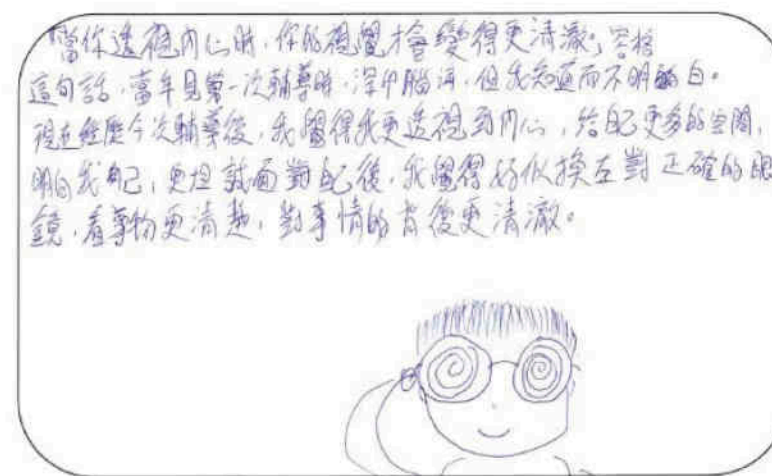 "當你透視內心時,你的視覺才會變得更清澈。"容格
這句話,當年見第一次輔導時,深印腦海,但我知道而不明白。
現在經歷今次輔導後,我覺得我更透視到內心,給自己更多的空間,
明白我自己,更坦誠面對自己後,我覺得好似換左對正確的眼
鏡,看事物更清楚,對事情的背後更清澈。